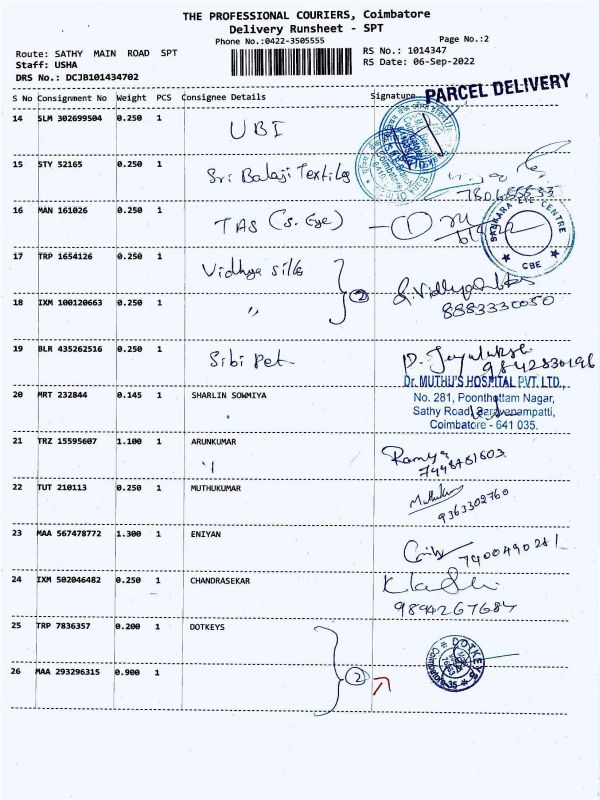 THE PROFESSIONAL COURIERS, Coimbatore
Delivery Runsheet - SPT
Phone No.:0422-3505555
Page No.:2
Route: SATHY MAIN ROAD SPT
RS No.: 1014347
Staff: USHA
RS Date: 06-Sep-2022
DRS No.: DCJB101434702
S No Consignment No Weight PCS Consignee Details Signature
PARCEL DELIVERY
14 SLM 302699504 0.250 1 UBI
15 STY 52165 0.250 1 Sri Balaji Textiles
16 MAN 161026 0.250 1 TAS (S. Eye)
SANKARA EYE CENTRE
CBE
17 TRP 1654126 0.250 1 Vidhya silks
2
18 IXM 100120663 0.250 1 "
8883330050
19 BLR 435262516 0.250 1 Sibi Pet
9842830196
Dr. MUTHU'S HOSPITAL PVT. LTD.,
20 MRT 232844 0.145 1 SHARLIN SOWMIYA
No. 281, Poonthottam Nagar,
Sathy Road, Saravanampatti,
Coimbatore - 641 035.
21 TRZ 15595607 1.100 1 ARUNKUMAR
Ramya
22 TUT 210113 0.250 1 MUTHUKUMAR
Muthukumar
9363302760
23 MAA 567478772 1.300 1 ENIYAN
24 IXM 502046482 0.250 1 CHANDRASEKAR
9894267687
25 TRP 7836357 0.200 1 DOTKEYS
DOTKEYS
Coimbatore-35
26 MAA 293296315 0.900 1
2